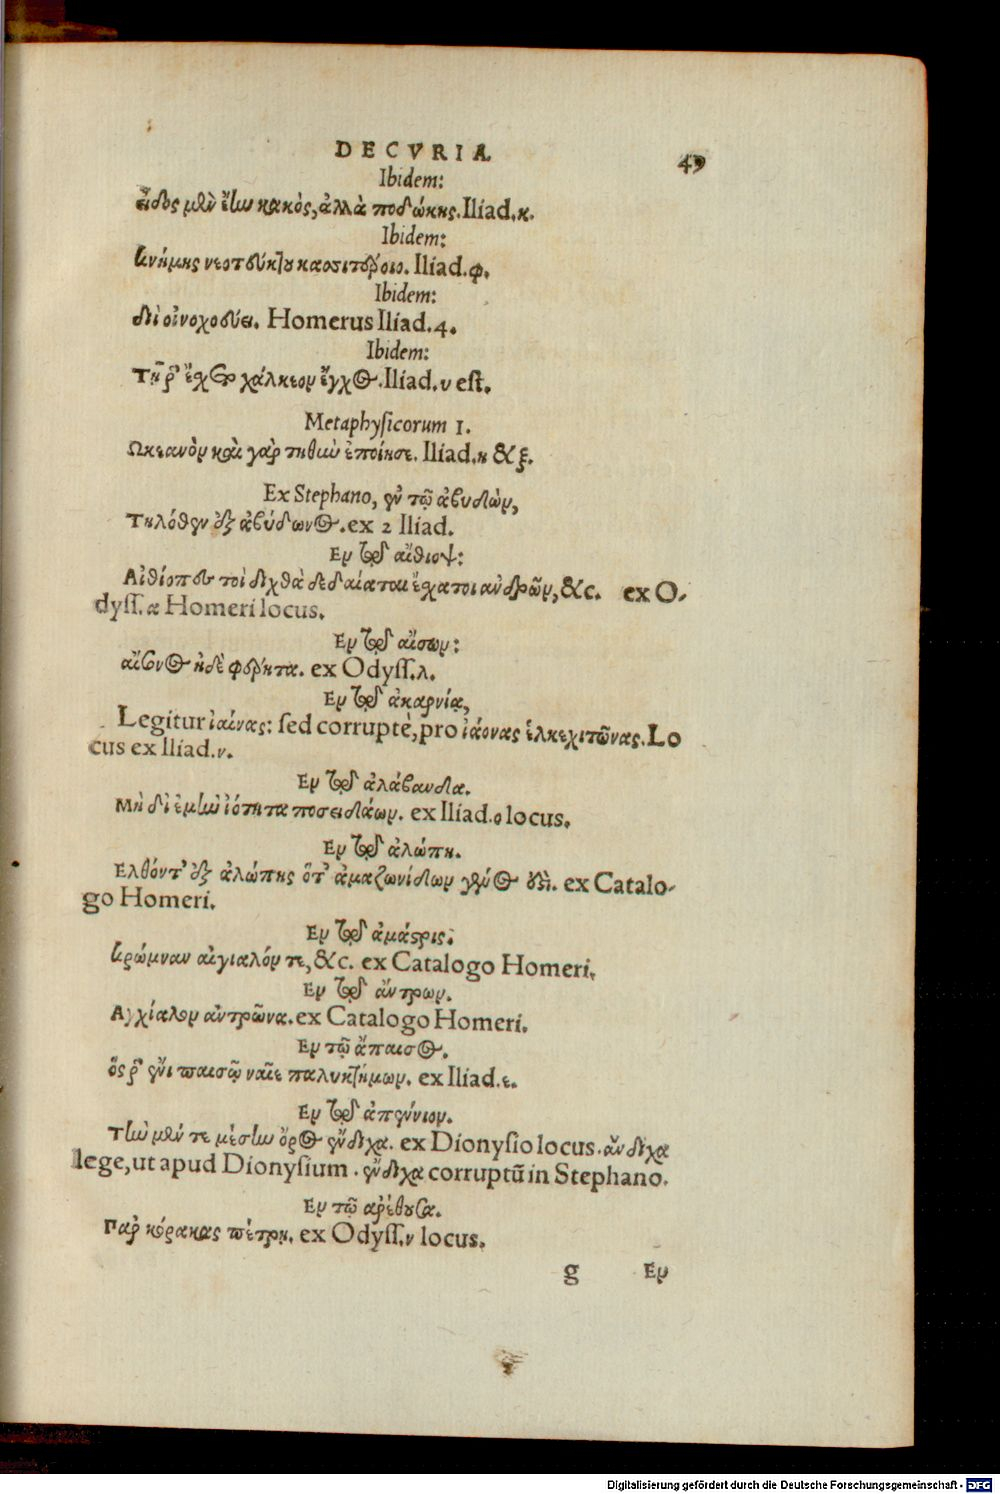 DECVRIA 49
Ibidem:
εἶδος μὲν ἔην κακὸς, ἀλλὰ ποδώκης. Iliad.κ.
Ibidem:
κνήμης νεοτεύκτου κασσιτέροιο. Iliad.φ.
Ibidem:
διὶ οἰνοχοεύει. Homerus Iliad.4.
Ibidem:
Τῇ ῥ' ἔχετο χάλκεον ἔγχος. Iliad.υ est.
Metaphysicorum 1.
Ωκεανὸν καὶ γὰρ τηθιὺ ἐποίησε. Iliad.η & ξ.
Ex Stephano, ἐν τῷ ἀβυδὼν,
Τηλόθεν ἐξ ἀβύδωνος. ex 2 Iliad.
Εν τῷ αἴθιοψ:
Αἰθίοπας τοὶ διχθὰ δεδαίαται ἔχατοι ἀνδρῶν, &c. ex O-
dyss. α Homeri locus.
Εν τῷ αἴσων:
αἴσονος ἠδὲ φέρητα. ex Odyss.λ.
Εν τῷ ἀκαρνία,
Legitur ἰαίνας: sed corruptè, pro ἰάονας ἑλκεχιτῶνας. Lo
cus ex Iliad.ν.
Εν τῷ ἀλάβανδα.
Μὴ δι' ἐμὴν ἰότητα ποσειδάων. ex Iliad.ο locus.
Εν τῷ ἀλώπη.
Ελθόντ' ἐξ ἀλώπης ὅτ' ἀμαζονίδων γένος ἐστί. ex Catalo-
go Homeri.
Εν τῷ ἀμάστρις.
κρώμναν αἰγιαλόν τε, &c. ex Catalogo Homeri.
Εν τῷ ἄντρων.
Αγχίαλον ἀντρῶνα. ex Catalogo Homeri.
Εν τῷ ἄπαισος.
ὅς ῥ' ἐνὶ παισῷ ναῖε παλυκτήμων. ex Iliad.ε.
Εν τῷ ἀπέννιον.
Τὴν μέν τε μέσην ὄρος ἔνδιχα. ex Dionysio locus. ἄνδιχα
lege, ut apud Dionysium. ἔνδιχα corruptū in Stephano.
Εν τῷ ἀρέθουσα.
Παρ κόρακας πέτρη. ex Odyss.ν locus.
g Εν
Digitalisierung gefördert durch die Deutsche Forschungsgemeinschaft - DFG